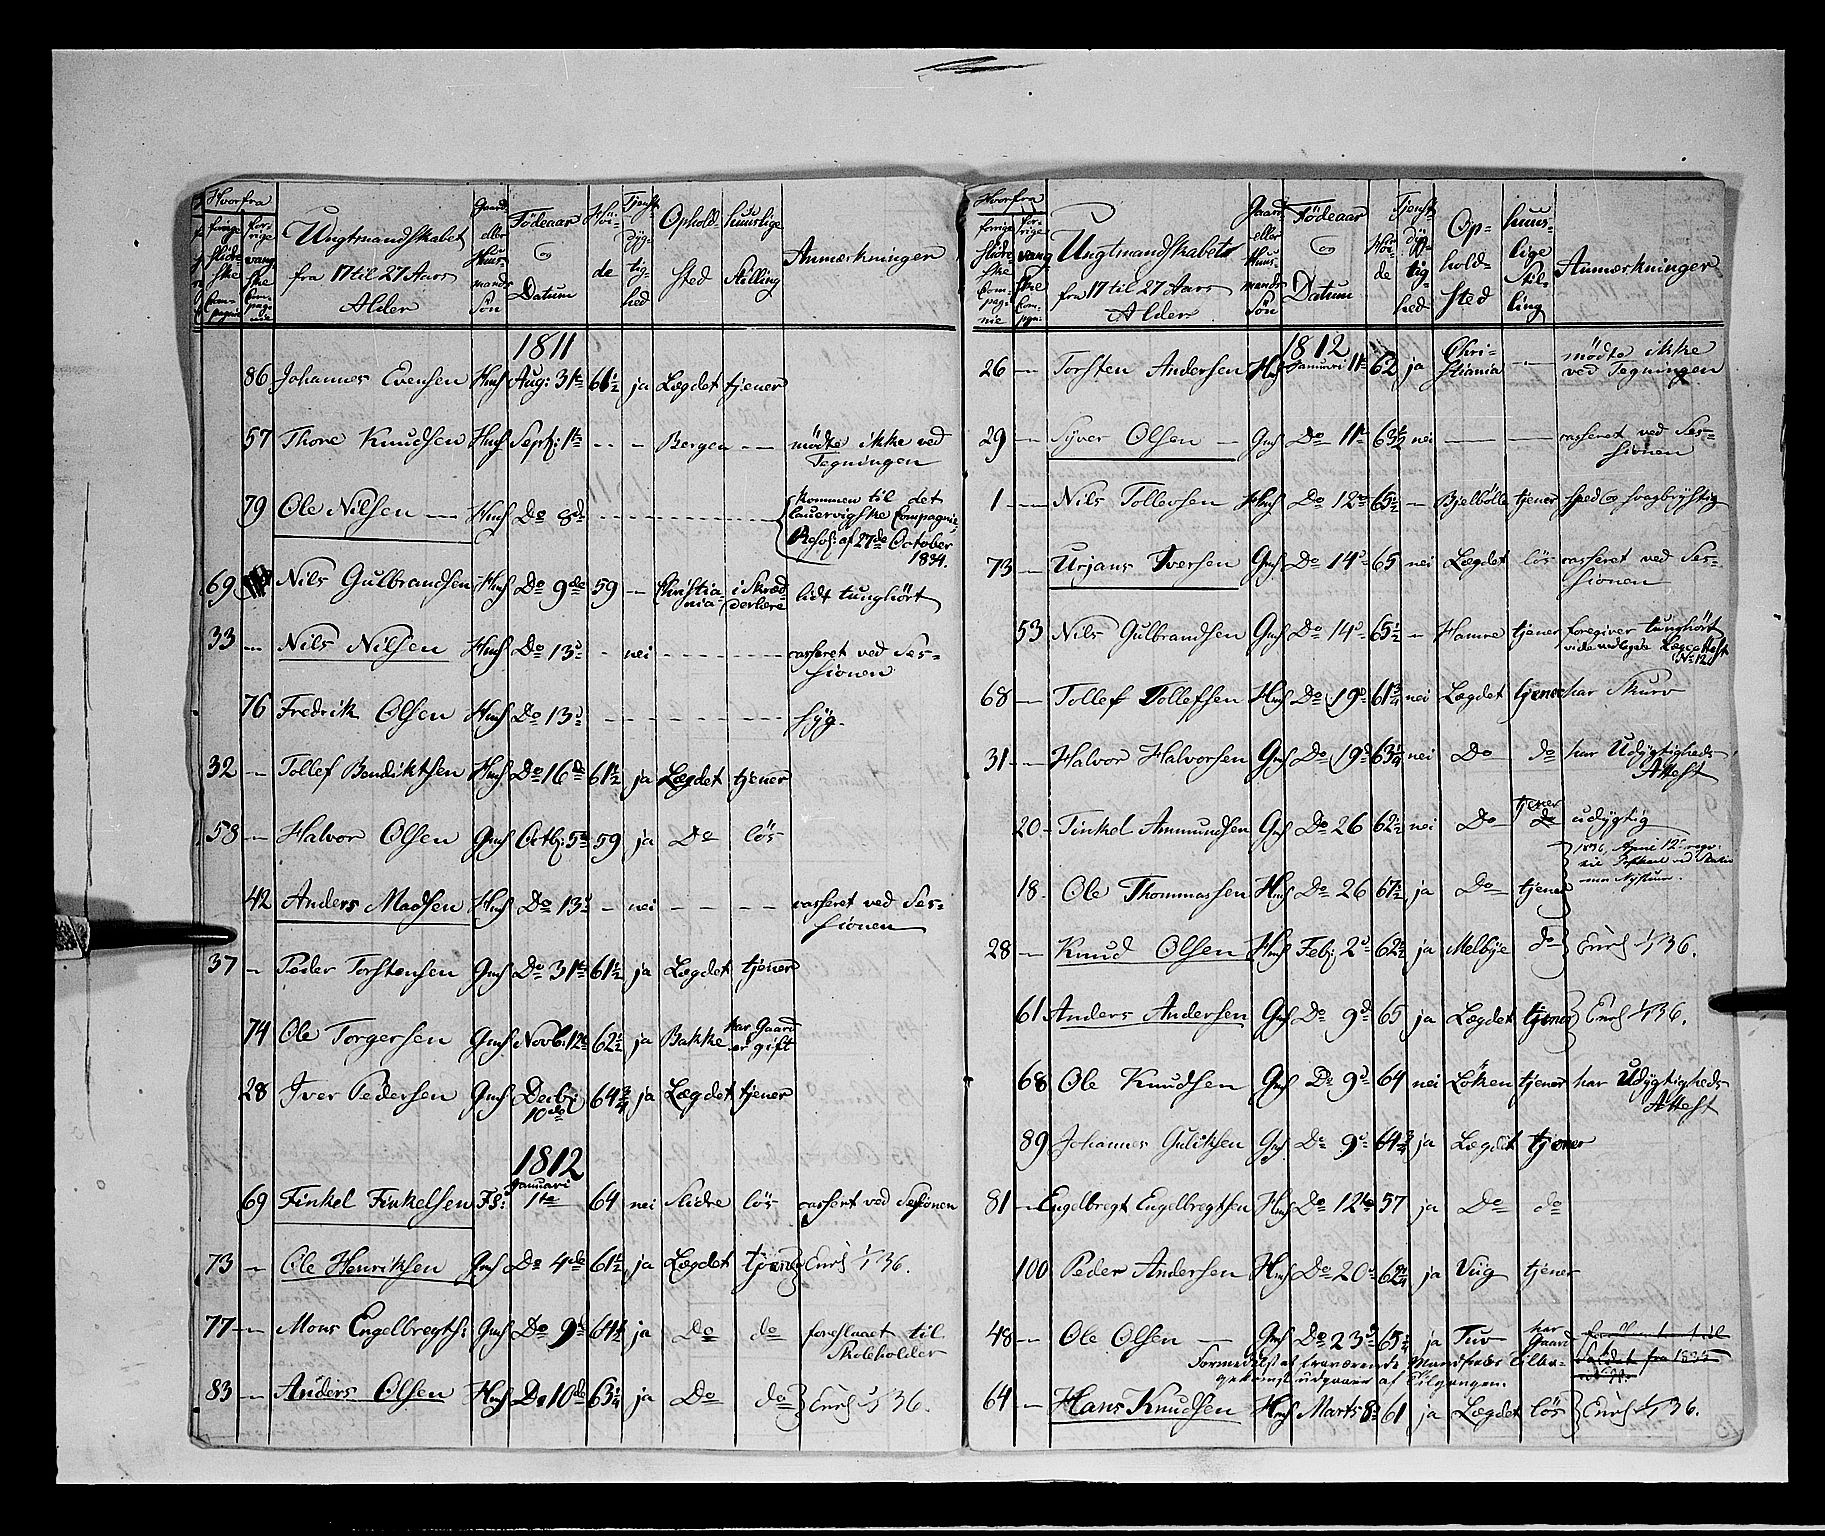 Hvorfra
forrige Slidreske Compagnie
forrige vangske Compagnie
Ungtmandskabet fra 17 til 27 Aars Alder
Gaard eller Huusmands Søn
Födeaar og Datum
Höide
Tjenstdygtighed
Opholdsted
huuslige Stilling
Anmærkninger
1811
86 Johannes Evensen Hms Aug: 31te 61½ ja Lægdet tjener
57 Thore Knudsen Hms Septb: 1te - - Bergen - - mödte ikke ved
Tegningen
79 Ole Nilsen Hms Do 8de - - - - kommen til det
lauervigske Compagnie,
Resol: af 27de October
1834.
69 Nils Gulbrandsen Hms Do 9de 59 - Christiania i Skrædderlære lidt tunghört
33 - Nils Nilsen Hms Do 13de - nei - - - casseret ved Ses-
sionen
76 Fredrik Olsen Hms Do 13de - - - - syg.
32 - Tollef Bendiktsen Hms Do 16de 61½ ja Lægdet tjener
58 - Halvor Olsen Gms Octb: 5te 59 ja Do lös
42 Anders Madsen Hms Do 13de - nei - - - casseret ved Ses-
sionen
37 - Peder Torstensen Gms Do 31te 61½ ja Lægdet tjener
74 Ole Torgersen Gms Novb: 12te 62½ ja Bakke har Gaard er gift
28 Iver Pedersen Gms Decbj: 10de 64¾ ja Lægdet tjener
1812
69 Finkel Finkelsen FS: Januari 1te 64 nei Slidre lös cassert ved Sessionen
73 - Ole Henriksen Gms Do 4de 61½ ja Lægdet tjener Enrl 36.
77 - Mons Engelbregts: Gms Do 9de 64½ ja Do do foreslaaet til
Skoleholder
83 - Anders Olsen Hms Do 10de 63¼ ja Do do Enrl 36.
Hvorfra
forrige Slidreske Compagnie
forrige vangske Comp:
Ungtmandskabet fra 17 til 27 Aars Alder
Gaard eller Huusmands Søn
Födeaar og Datum
Höide
Tjenstdygtighed
Opholdsted
huuslige Stilling
Anmærkninger
1812
26 - Torsten Andersen Hms Januari 11te 62 ja Christiania - mödte ikke
ved Tegningen
29 - Syver Olsen - Gms Do 11te 63½ nei - - casseret ved Ses-
sionen
1 - Nils Tollevsen Hms Do 12te 65½ - Bjelbölle tjener spæd og svagbrystig
73 - Urjans Iversen Gms Do 14de 65 nei Lægdet lös casseret ved Ses-
sionen
53 Nils Gulbrandsen Gms Do 14de 65½ - Hamre tjener foregiver tunghört
vide vedlagde Lægeattest
No 12
68 - Tollef Tollefsen Hms Do 19de 61¾ nei Lægdet tjener har Skurv
31 - Halvor Halvorsen Gms Do 19de 63¼ nei Do do har Udygtigheds
Attest
20 - Finkel Ammundsen Gms Do 26 62½ nei Do tjener do udygtig
1836, April 12
18. Ole Thommassen Hms Do 26 67½ ja Do tjener
28 - Knud Olsen Hms Feb: 2den 62½ ja Melbye do Enrl 36.
61 Anders Andersen Gms Do 9de 65 ja Lægdet tjener Enrl 36.
68 Ole Knudsen Gms Do 9de 64 nei Löken tjener har Udygtigheds
Attest
89 Johannes Guliksen Gms Do 9de 64¾ ja Lægdet tjener
81 - Engelbregt Engelbregtsen Hms Do 12te 57 ja Do do
100 Peder Andersen Hms Do 20de 62¾ ja Viig tjener
48 - Ole Olsen - Gms Do 23de 65½ ja Tuv har Gaard
fra 1835
Formedelst at fraværende Mandskabs Tilba-
gekomst udgaaer af Tilgangen.
64 - Hans Knudsen Hms Marts 8de 61 ja Lægdet lös Enrl 36.